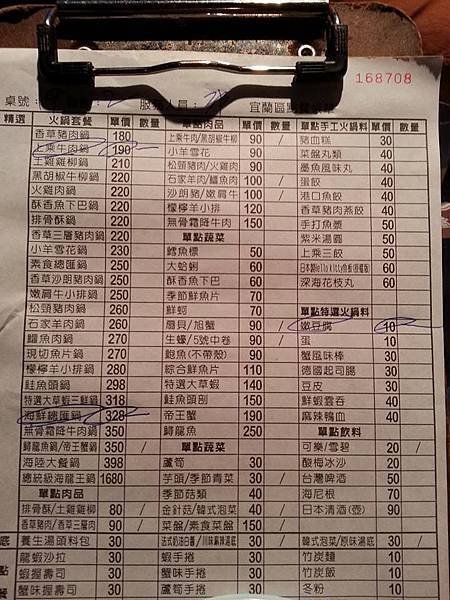 168708
桌號: 服務人員: 宜蘭區
精選 火鍋套餐 單價 數量 單點肉品 單價 數量 單點手工火鍋料 單價 數量
香草豬肉鍋 180 上乘牛肉/黑胡椒牛柳 90 / 豬血糕 30
上乘牛肉鍋 190 小羊雪花 90 菜盤丸類 40
土雞雞柳鍋 210 松頸豬肉/火雞肉 90 / 墨魚風味丸 40
黑胡椒牛柳鍋 220 石家羊肉/鱷魚肉 100 / 蛋餃 40
火雞肉鍋 220 沙朗豬/嫩肩牛 100 / 港口魚餃 40
酥香魚下巴鍋 220 檸檬羊小排 120 香草豬肉燕餃 40
排骨酥鍋 220 無骨霜降牛肉 150 手打魚漿 50
香草三層豬肉鍋 220 單點蔬菜 紫米湯圓 50
小羊雪花鍋 230 鱈魚標 50 上乘三餃 50
素食總匯鍋 250 大蛤蜊 60 60
香草沙朗豬肉鍋 250 酥香魚下巴 60 深海花枝丸 60
嫩肩牛小排鍋 250 季節鮮魚片 70
松頸豬肉鍋 260 鮮蚵 70 單點特選火鍋料
石家羊肉鍋 260 扇貝/旭蟹 90 / 嫩豆腐 10
鱷魚肉鍋 270 生蠔/5號中卷 90 / 蛋 10
現切魚片鍋 270 鮑魚(不帶殼) 90 蟹風味棒 30
檸檬羊小排鍋 280 綜合鮮魚片 110 德國起司腸 30
鮭魚頭鍋 298 特選大草蝦 140 豆皮 30
特選大草蝦三鮮鍋 318 鮭魚頭剖 150 鮮蝦雲吞 40
海鮮總匯鍋 328 帝王蟹 190 麻辣鴨血 40
無骨霜降牛肉鍋 350 鱘龍魚 250 單點飲料
鱘龍魚鍋/帝王蟹鍋 350 / 單點蔬菜 可樂/雪碧 20 /
海陸大餐鍋 398 蘆筍 30 酸梅冰沙 20
總統級海龍王鍋 1680 芋頭/季節青菜 30 / 台灣啤酒 50
單點肉品 季節菇類 40 海尼根 70
排骨酥/土雞雞柳 80 / 金針菇/韓式泡菜 40 / 日本清酒(壺) 90
香草豬肉/香草三層肉 90 / 菜盤/素食菜盤 150 /
底 養生湯頭料包 30 法式奶油白醬/川味麻辣湯底 30 / 韓式泡菜/原味湯底 30 /
龍蝦沙拉 30 蝦手捲 30 竹炭麵 10
點 蝦握壽司 30 蟹味手捲 30 竹炭飯 10
餐 蟹味握壽司 30 蘆筍手捲 30 冬粉 10